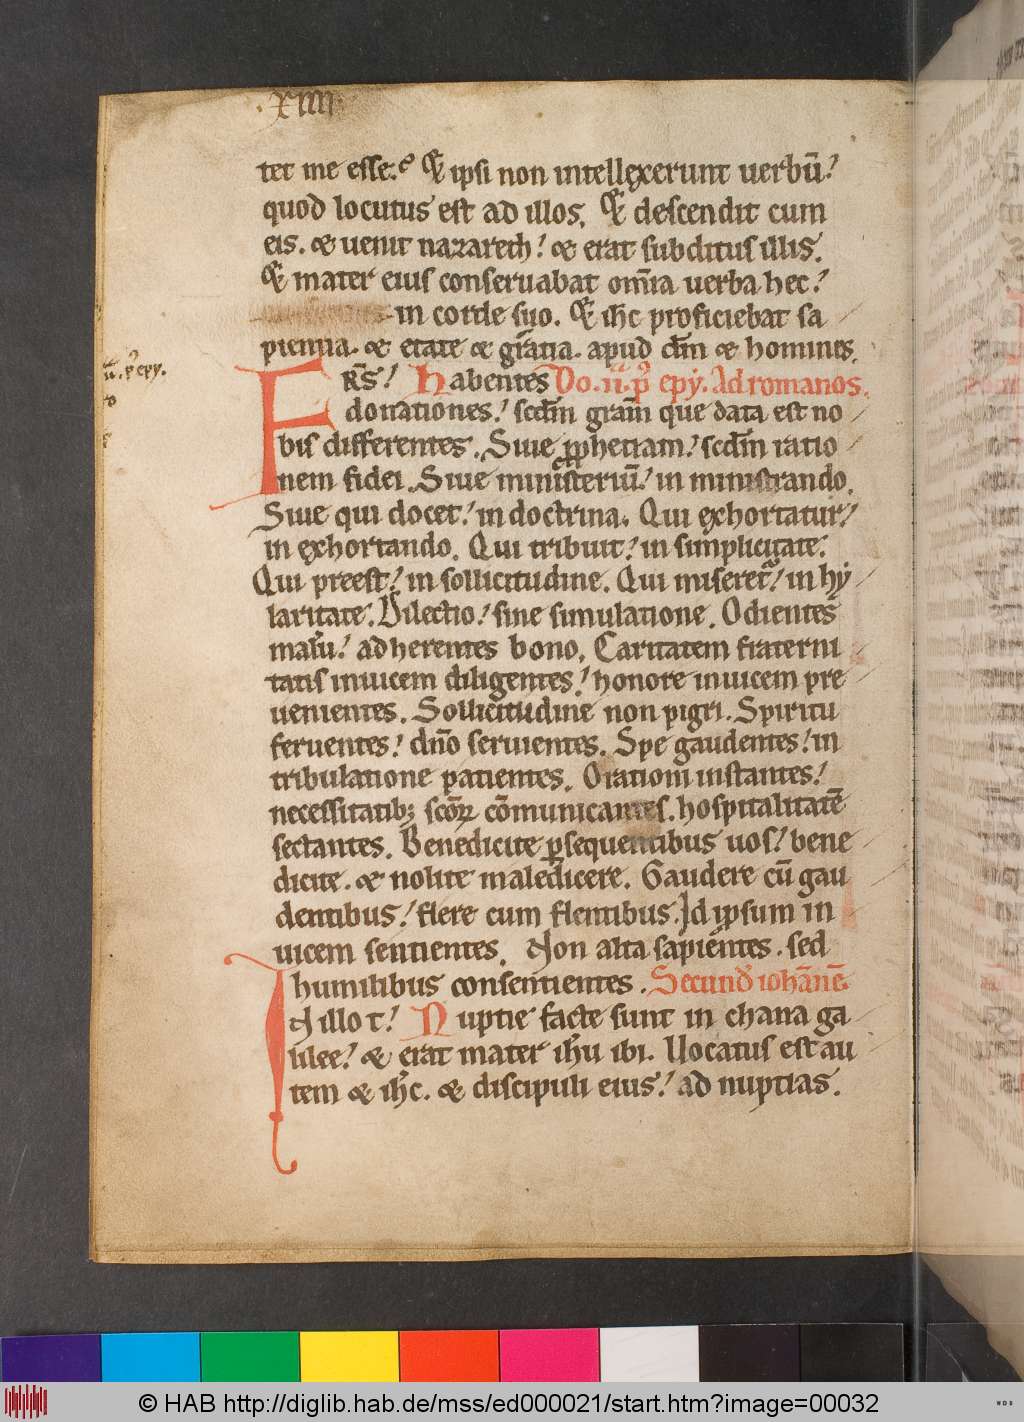 .xiiii.
tet me esse? Et ipsi non intellexerunt uerbū!
quod locutus est ad illos. Et descendit cum
eis. & uenit nazareth! & erat subditus illis.
Et mater eius conseruabat om̄ia uerba hec!
in corde suo. Et ih̄c proficiebat sa
pientia. & etate & gr̄atia. apud dm̄ & homines.
ū. p̄ epy.
FRS̄! Habentes Do. ii. p̄ epy. Ad romanos.
donationes! scd̄m gr̄am que data est no
bis differentes. Siue ꝓphetiam! scd̄m ratio
nem fidei. Siue ministeriū! in ministrando.
Siue qui docet! in doctrina. Qui exhortatur!
in exhortando. Qui tribuit! in simplicitate.
Qui preest! in sollicitudine. Qui miseret̄! in hy
laritate. Dilectio! sine simulatione. Odientes
malū! adherentes bono. Caritatem fraterni
tatis inuicem diligentes! honore inuicem pre
uenientes. Sollicitudine non pigri. Spiritu
feruentes! dn̄o seruientes. Spe gaudentes! in
tribulatione patientes. Orationi instantes!
necessitatibꝫ scōꝝ cōmunicantes. hospitalitatē
sectantes. Benedicite ꝑsequentibus uos! bene
dicite. & nolite maledicere. Gaudere cū gau
dentibus! flere cum flentibus. Id ipsum in
uicem sentientes. Non alta sapientes. sed
humilibus consentientes. Secund̄ ioh̄annē.
IN illo t! Nuptie facte sunt in chana ga
lilee! & erat mater ih̄u ibi. Uocatus est au
tem & ih̄c. & discipuli eius! ad nuptias.
© HAB http://diglib.hab.de/mss/ed000021/start.htm?image=00032